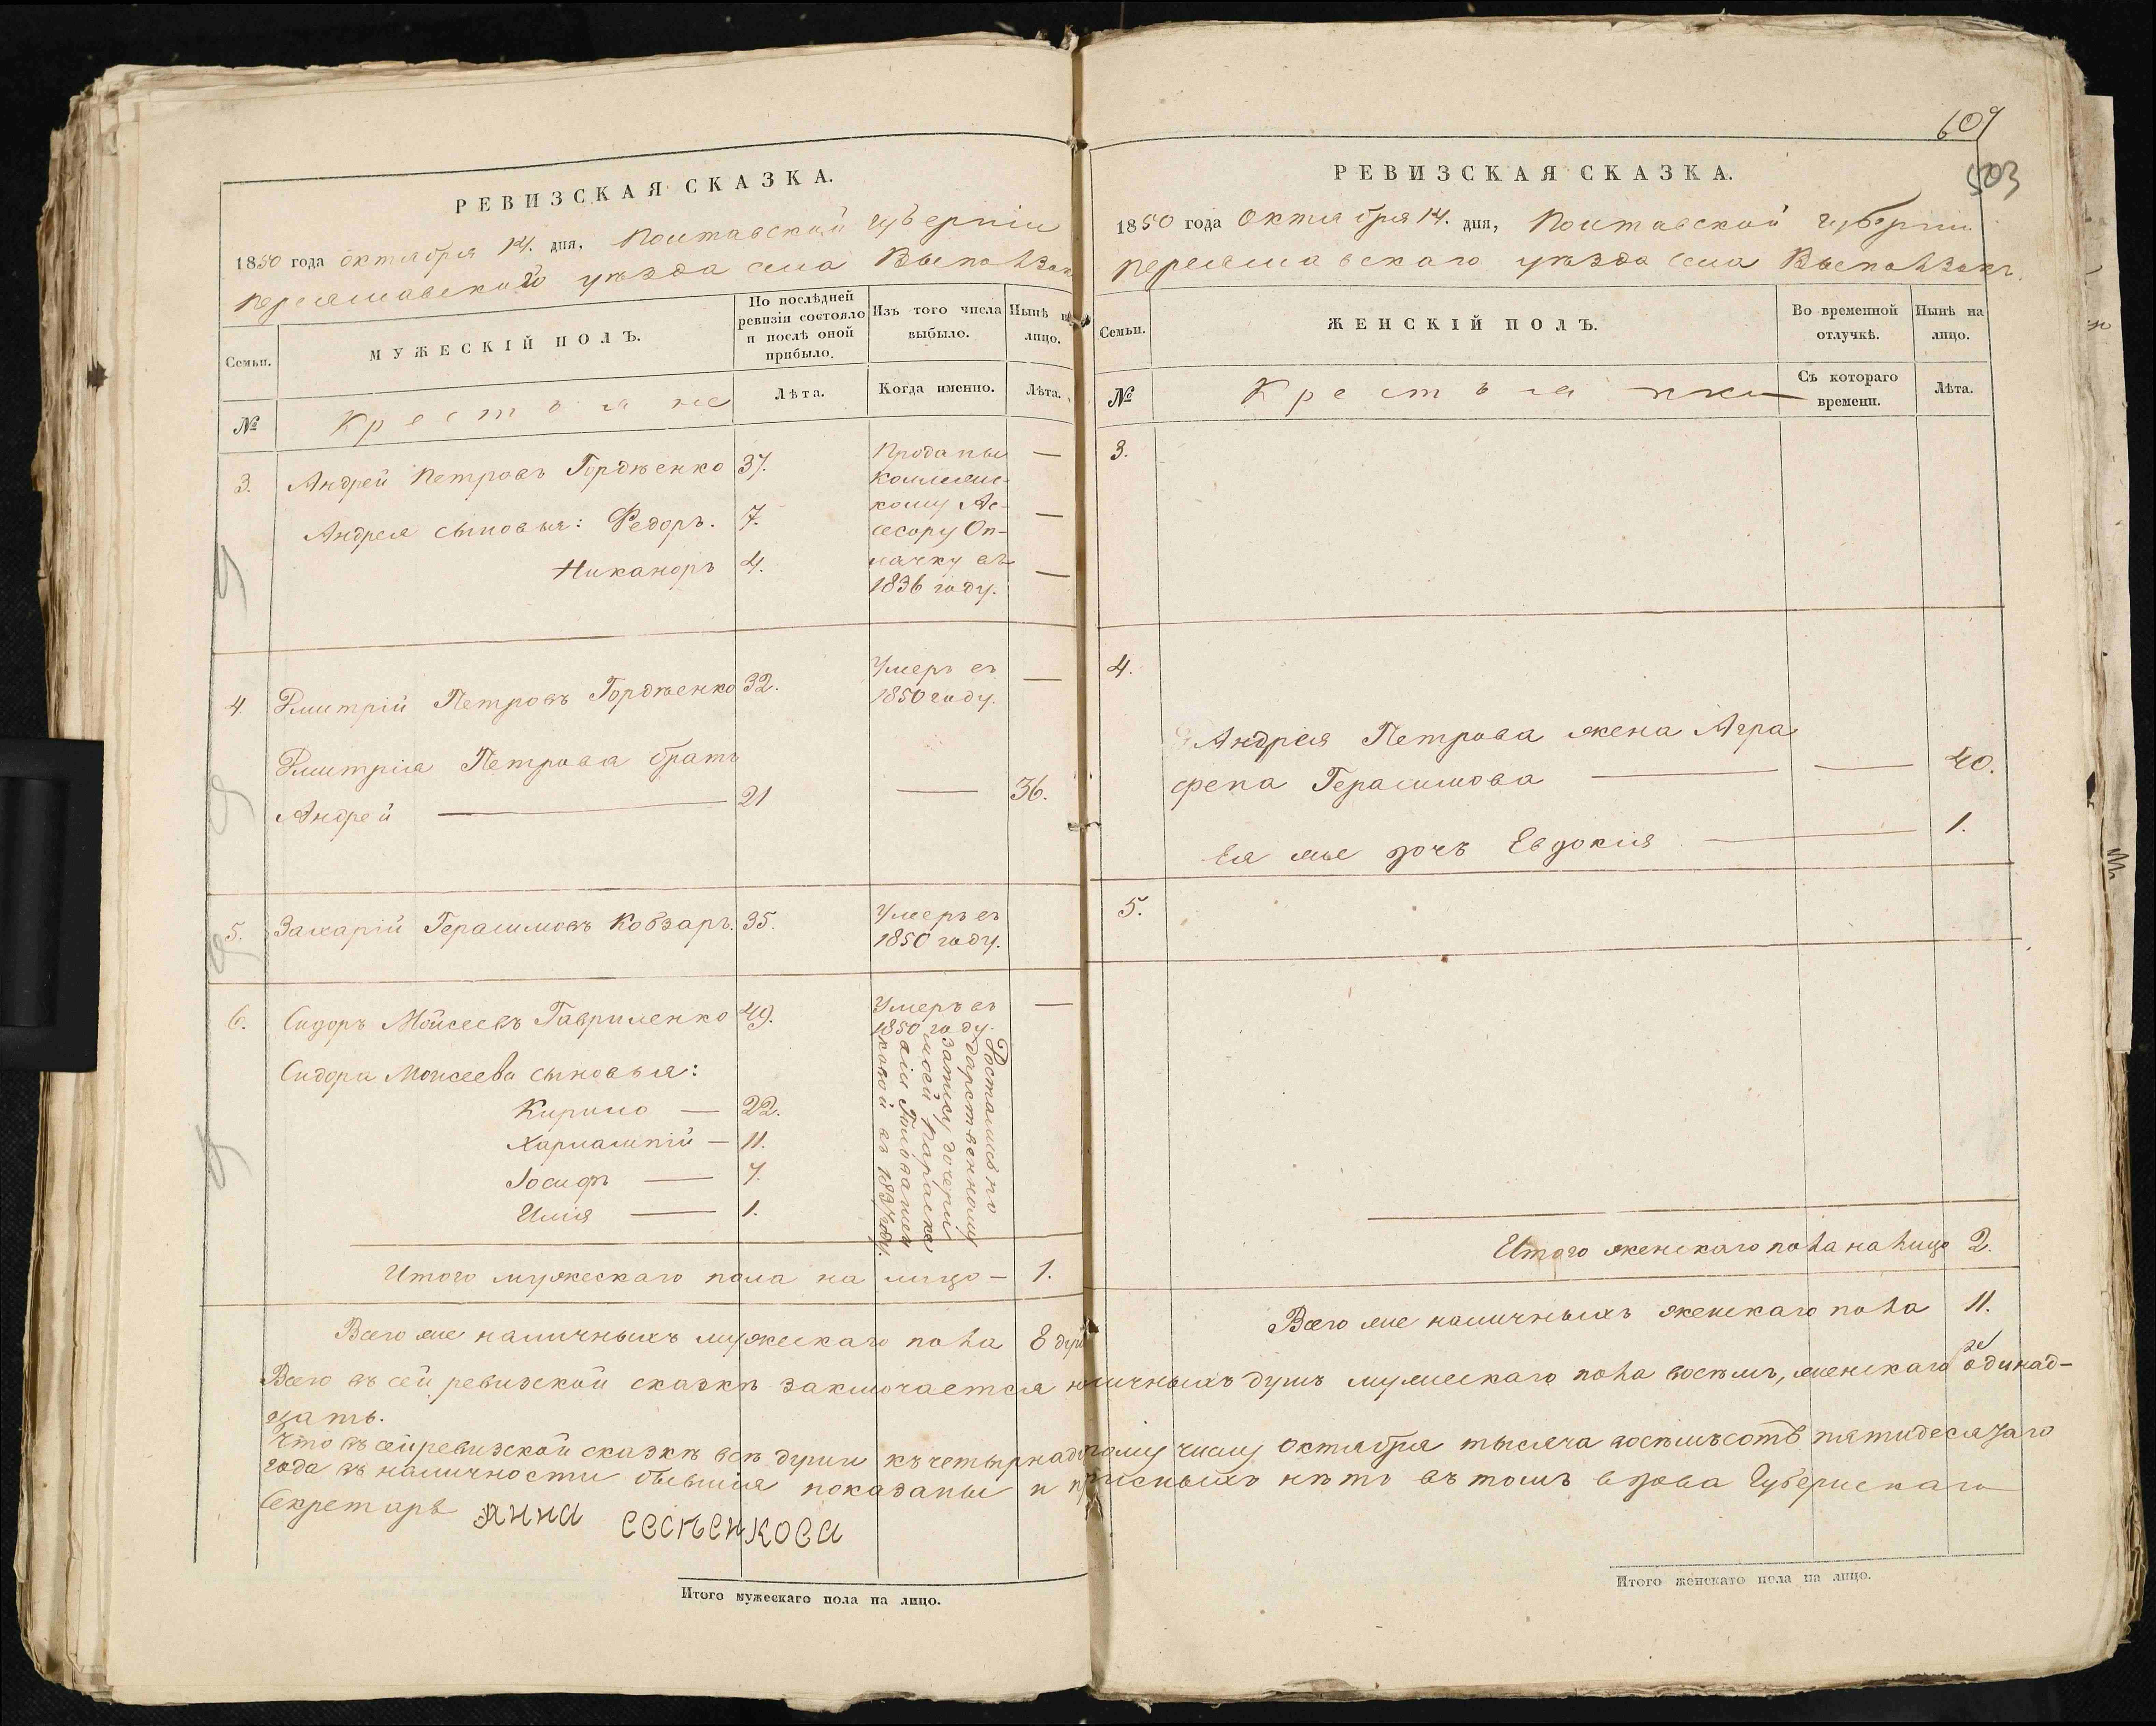 РЕВИЗСКАЯ СКАЗКА.
1850 года октября 14. дня, Полтавской губерніи
Переяславского уѣзда села Выползок
Семьи.
МУЖЕСКІЙ ПОЛЪ.
По послѣдней ревизіи состояло и послѣ оной прибыло.
Изъ того числа выбыло.
Нынѣ на лицо.
№
Крестьяне
Лѣта.
Когда именно.
Лѣта.
3. Андрей Петровъ Гордѣенко 37. Проданы —
Коллежс-
Андрея сыновья: Федоръ. 7. кому Ас- —
сесору Оп-
Никаноръ 4. лачку въ —
1836 году.
4. Дмитрій Петровъ Гордѣенко 32. Умеръ въ —
1850 году.
Дмитрія Петрова братъ
Андрей — 21 — 36.
5. Захарій Герасимовъ Кобзарь. 35. Умеръ въ
1850 году.
6. Сидоръ Моисеевъ Гавриленко 49. Умеръ въ —
1850 году.
Сидора Моисеева сыновья:
Кирило — 22.
Харлампій — 11.
Іосифъ — 7.
Илія — 1.
Достались по
дарственному
запису дочери
моей
въ 1837 году.
Итого мужескаго пола на лицо — 1.
Всего же наличныхъ мужескаго пола 8 душ
609
503
РЕВИЗСКАЯ СКАЗКА.
1850 года Октября 14. дня, Полтавской губерніи
Переяславскаго уѣзда села Выползокъ.
Семьи.
ЖЕНСКІЙ ПОЛЪ.
Во временной отлучкѣ.
Нынѣ на лицо.
№
Крестьянки
Съ котораго времени.
Лѣта.
3.
4.
Андрея Петрова жена Агра
фена Герасимова — — 40.
Ея же дочь Евдокія — 1.
5.
Итого женскаго пола на лицо 2.
Всего же наличныхъ женскаго пола 11.
Всего въ сей ревизской сказкѣ заключается наличныхъ душъ мужескаго пола восемь, женскаго одинад-
цать.
Что въ сей ревизской сказкѣ всѣ души къ четырнадцатому числу Октября тысяча восемьсотъ пятидесятаго
года въ наличности бывшія показаны и прописныхъ нѣтъ въ томъ вдова Губернскаго
Секретаря Анна Евсѣенкова
Итого мужескаго пола на лицо.
Итого женскаго пола на лицо.